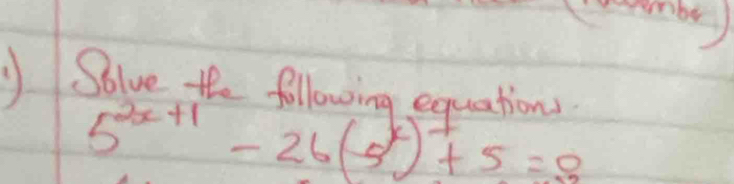 1) Solve the following equations.
5^{2x+1} - 26(5^x) + 5 = 0